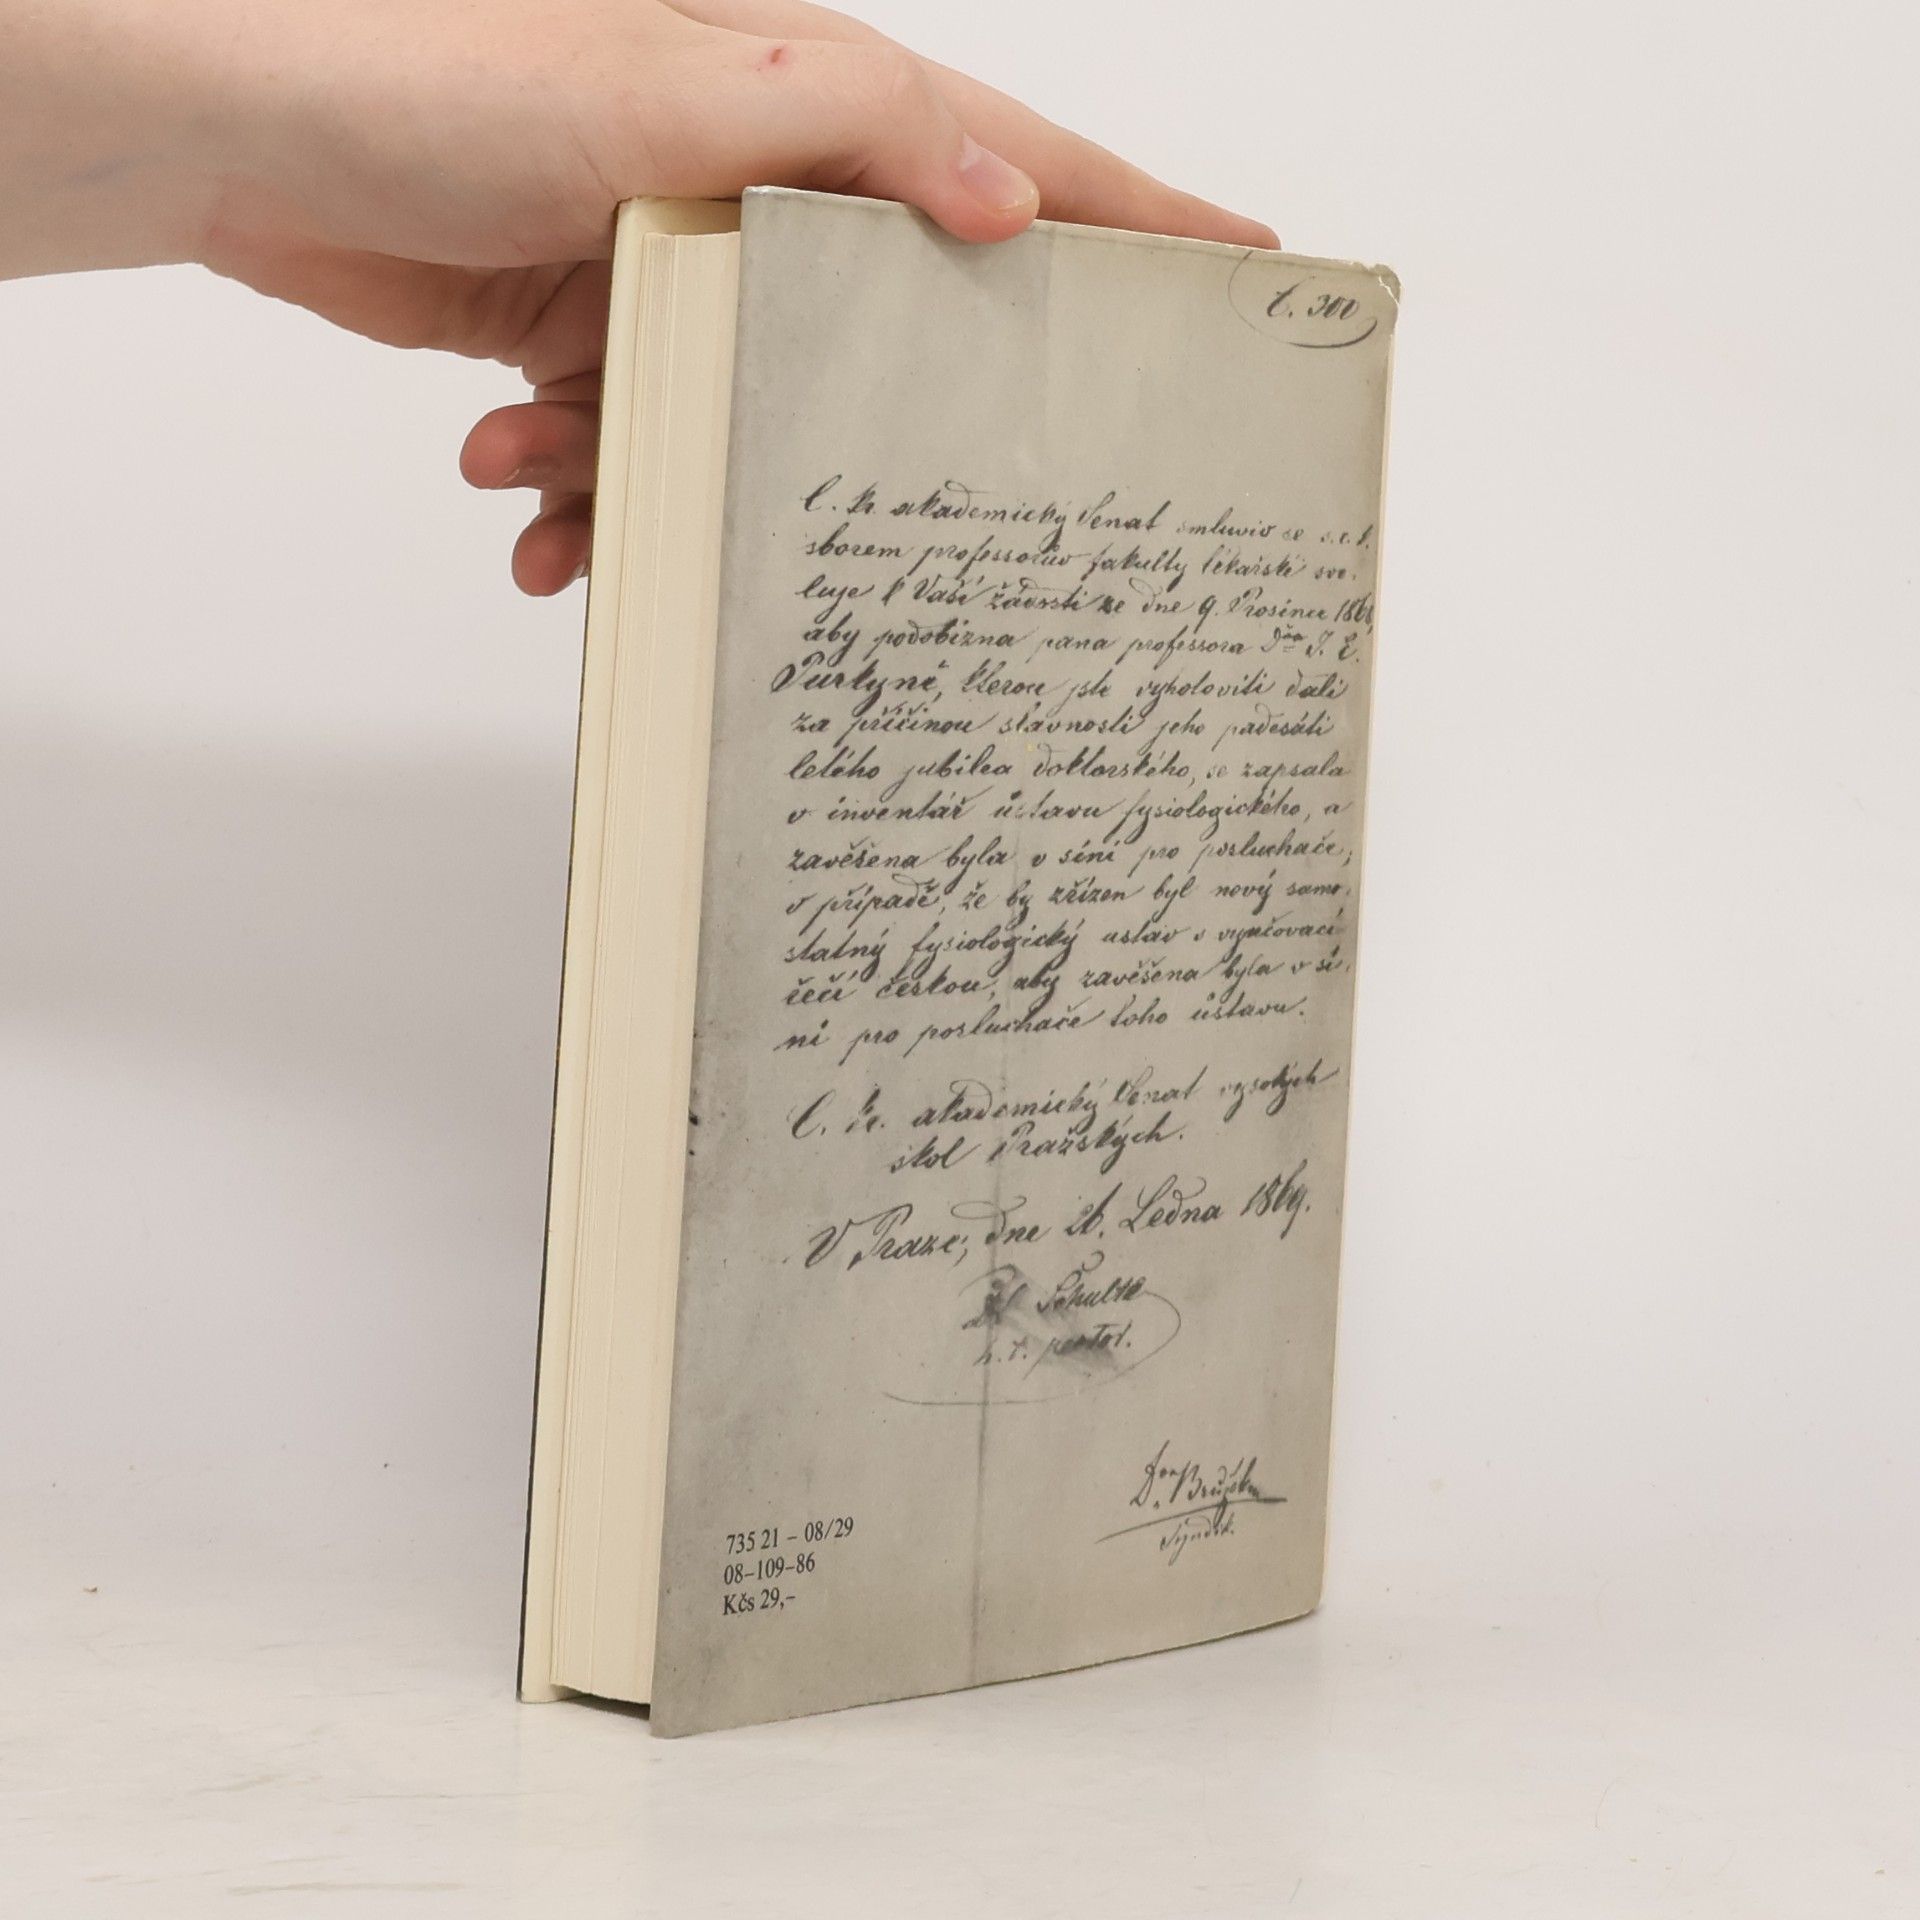 č. 300
C. k. akademický Senat smluviv se s. c. k.
sborem professorův fakulty lékařské svo-
luje k Vaší žádosti ze dne 9. Prosince 1868,
aby podobizna pana professora Dra J. E.
Purkyně, kterou jste vyhotoviti dali
za příčinou slavnosti jeho padesáti
letého jubilea doktorského, se zapsala
v inventář ústavu fysiologického, a
zavěšena byla v síni pro posluchače;
v případě, že by zřízen byl nový samo-
statný fysiologický ustav s vyučovací
řečí českou, aby zavěšena byla v sí-
ni pro posluchače toho ústavu.
C. k. akademický Senat vysokých
škol Pražských.
V Praze, dne 26. Ledna 1869.
Schulte
h. t. rector.
Syndik.
735 21 – 08/29
08–109–86
Kčs 29,–